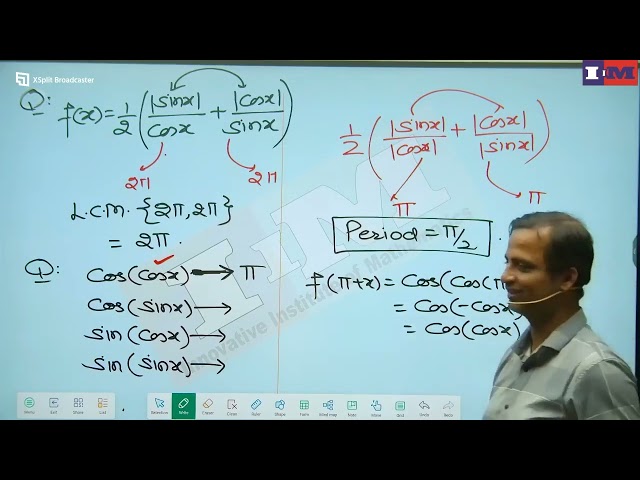 XSplit Broadcaster
I-M
Q: f(x) = 1/2 ( |sinx|/cosx + |cosx|/sinx )
2π 2π
L.C.M. {2π, 2π}
= 2π.
1/2 ( |sinx|/|cosx| + |cosx|/|sinx| )
π π
Period = π/2 .
Q: Cos(cosx) → π
Cos(sinx) →
sin(cosx) →
sin(sinx) →
f(π+x) = Cos(Cos(π
= Cos(-cosx)
= Cos(cosx)
IIM
Innovative Institute of
Menu
Exit
Share
List
Selection
Write
Eraser
Clear
Ruler
Shape
Form
Mind map
Note
More
Grid
Undo
Redo